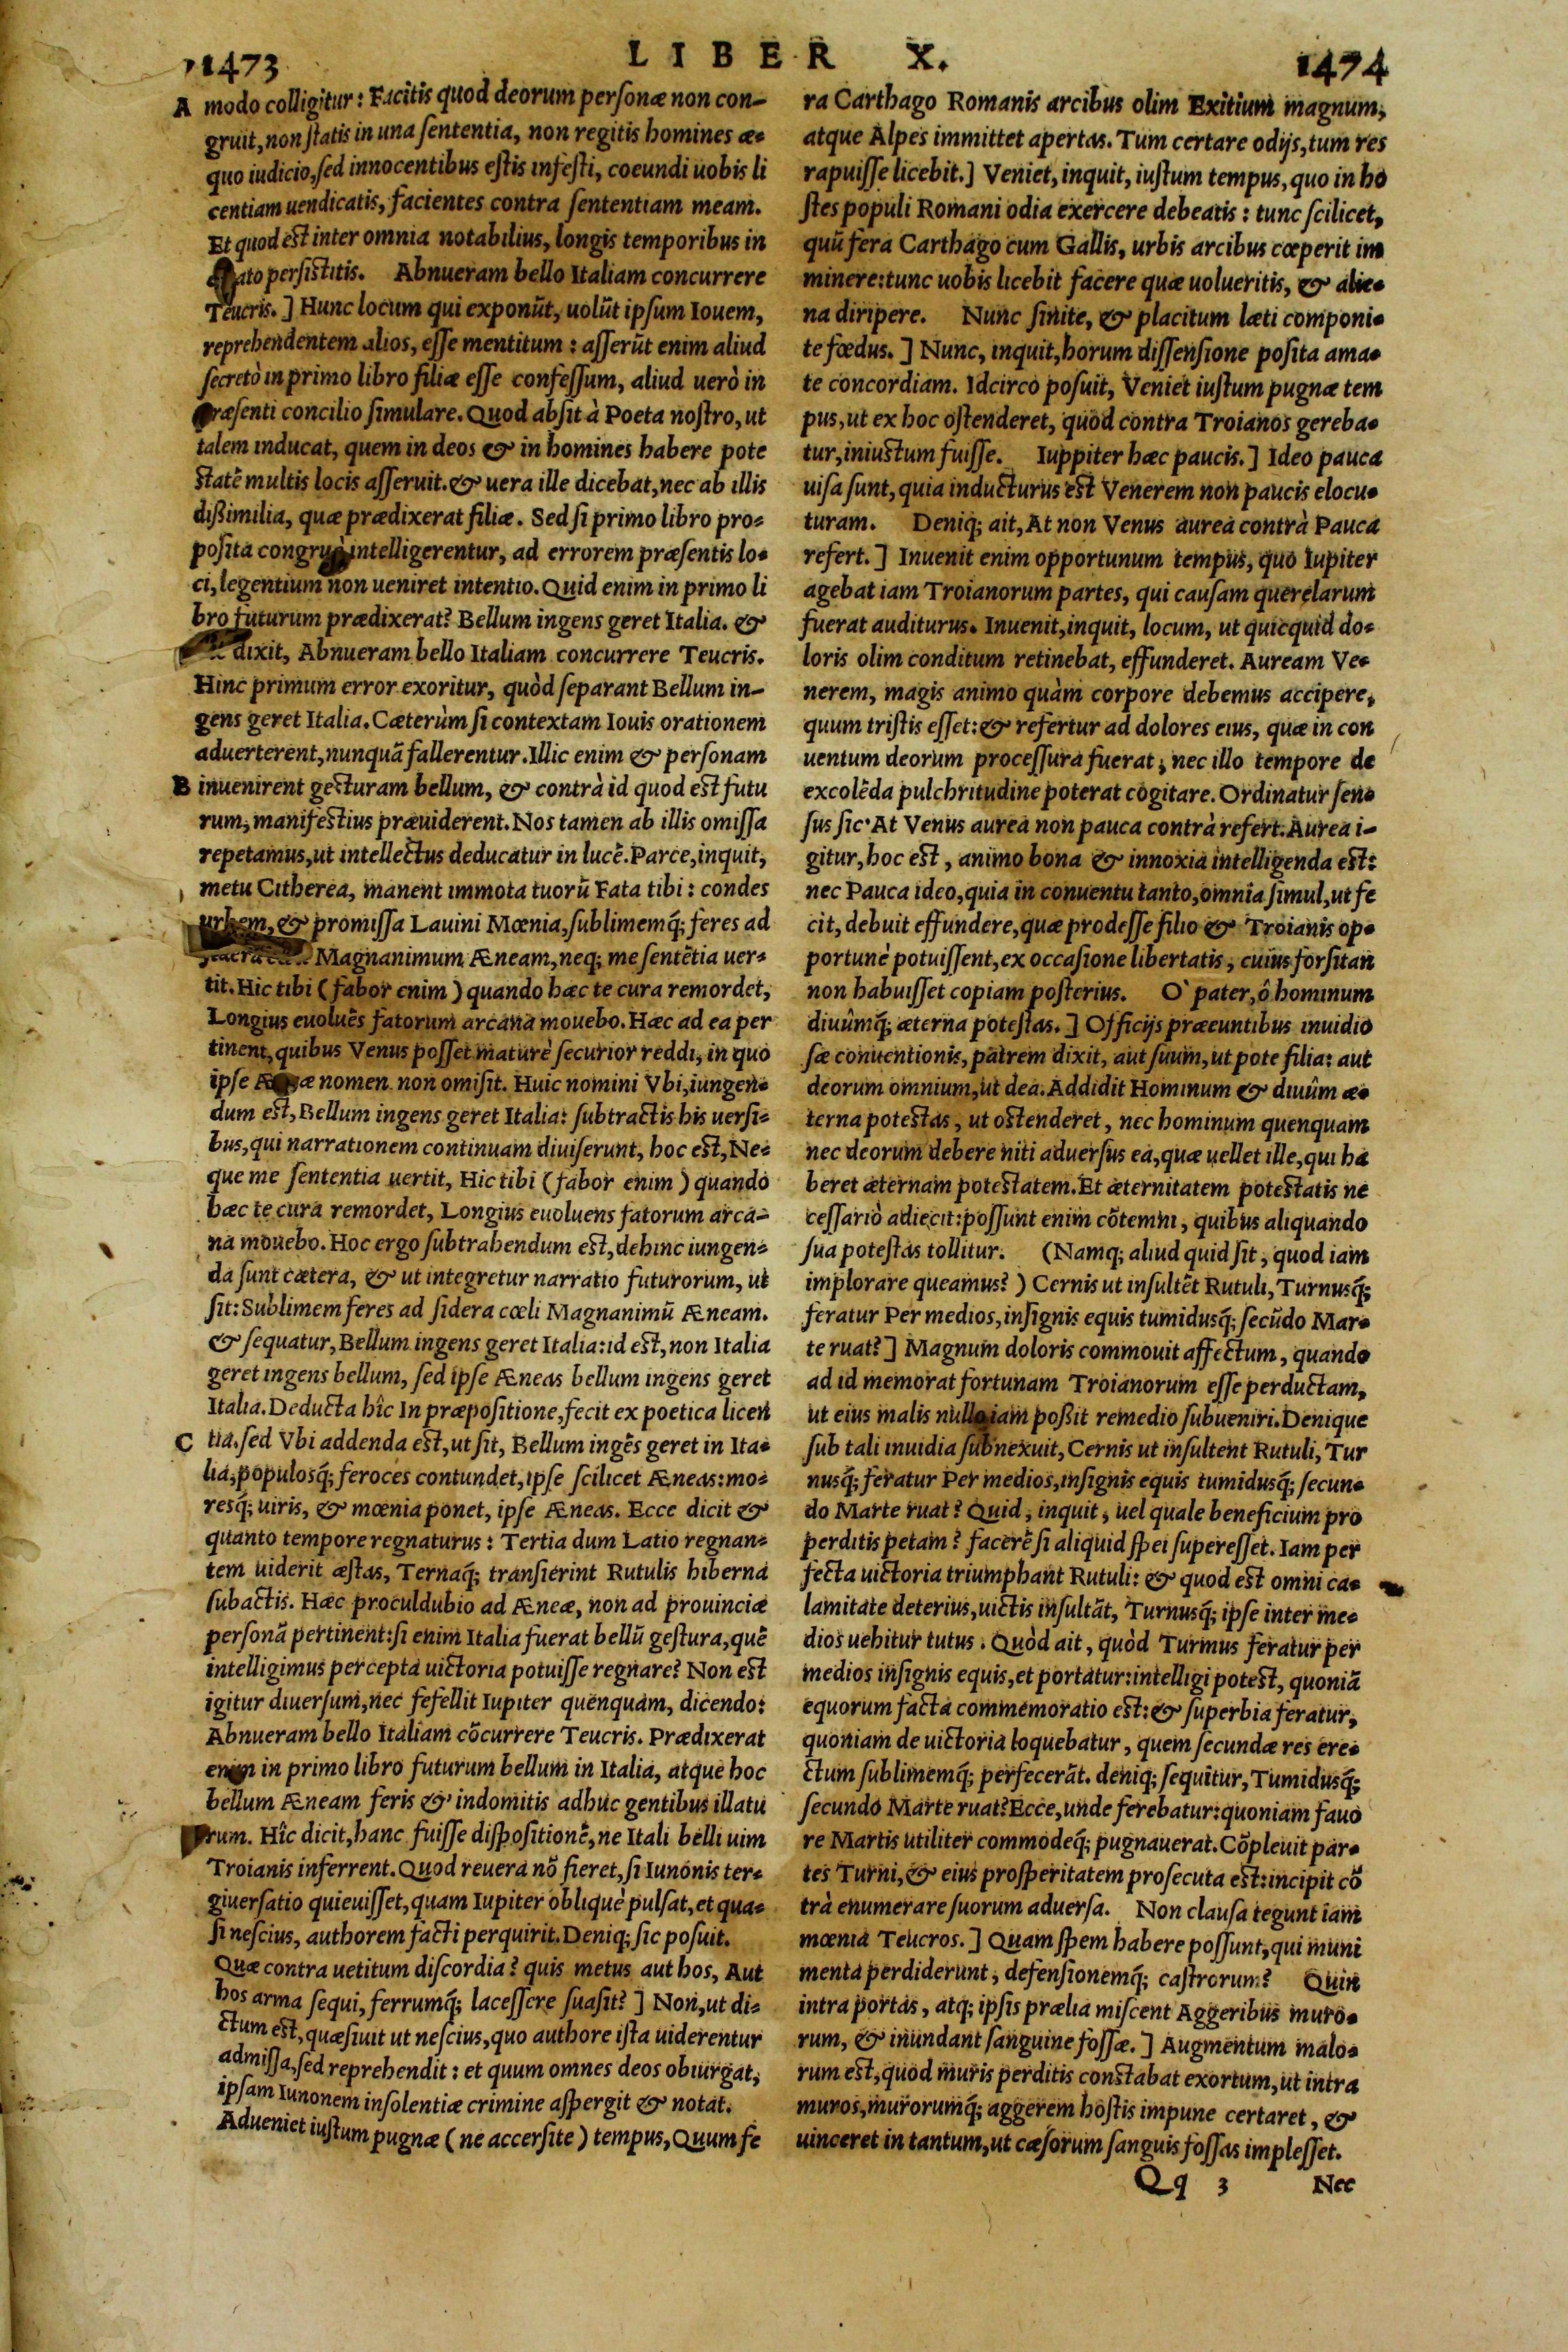 1473
LIBER X.
1474
A modo colligitur: Facitis quod deorum personæ non con-
gruit, non statis in una sententia, non regitis homines æ-
quo iudicio, sed innocentibus estis infesti, coeundi uobis li
centiam uendicatis, facientes contra sententiam meam.
Et quod est inter omnia notabilius, longis temporibus in
persistitis. Abnueram bello Italiam concurrere
Teucris.] Hunc locum qui exponũt, uolũt ipsum Iouem,
reprehendentem alios, esse mentitum: asserũt enim aliud
secretò in primo libro filiæ esse confessum, aliud uerò in
præsenti concilio simulare. Quod absit à Poeta nostro, ut
talem inducat, quem in deos & in homines habere pote
statẽ multis locis asseruit. & uera ille dicebat, nec ab illis
dißimilia, quæ prædixerat filiæ. Sed si primo libro pro-
posita intelligerentur, ad errorem præsentis lo-
ci, legentium non ueniret intentio. Quid enim in primo li
bro futurum prædixerat? Bellum ingens geret Italia. &
dixit, Abnueram bello Italiam concurrere Teucris.
Hinc primum error exoritur, quòd separant Bellum in-
gens geret Italia. Cæterùm si contextam Iouis orationem
aduerterent, nunquã fallerentur. Illic enim & personam
B inuenirent gesturam bellum, & contrà id quod est futu
rum, manifestius præuiderent. Nos tamen ab illis omissa
repetamus, ut intellectus deducatur in lucẽ. Parce, inquit,
metu Citherea, manent immota tuorũ Fata tibi: condes
urbem, & promissa Lauini Mœnia, sublimemq́; feres ad
Magnanimum Æneam, neq; me sentẽtia uer-
tit. Hic tibi (fabor enim) quando hæc te cura remordet,
Longius euoluẽs fatorum arcana mouebo. Hæc ad ea per
tinent, quibus Venus posset maturè securior reddi, in quo
ipse nomen non omisit. Huic nomini Vbi, iungen-
dum est, Bellum ingens geret Italia: subtractis his uersi-
bus, qui narrationem continuam diuiserunt, hoc est, Ne-
que me sententia uertit, Hic tibi (fabor enim) quando
hæc te cura remordet, Longius euoluens fatorum arca-
na mouebo. Hoc ergo subtrahendum est, dehinc iungen-
da sunt cætera, & ut integretur narratio futurorum, ut
sit: Sublimem feres ad sidera cœli Magnanimũ Æneam.
& sequatur, Bellum ingens geret Italia: id est, non Italia
geret ingens bellum, sed ipse Æneas bellum ingens geret
Italia. Deducta hîc In præpositione, fecit ex poetica licen
C tia. sed Vbi addenda est, ut sit, Bellum ingẽs geret in Ita-
lia, populosq́; feroces contundet, ipse scilicet Æneas: mo-
resq́; uiris, & mœnia ponet, ipse Æneas. Ecce dicit &
quanto tempore regnaturus: Tertia dum Latio regnan-
tem uiderit æstas, Ternaq́; transierint Rutulis hiberna
subactis. Hæc proculdubio ad Æneæ, non ad prouinciæ
personã pertinent: si enim Italia fuerat bellũ gestura, quẽ
intelligimus percepta uictoria potuisse regnare? Non est
igitur diuersum, nec fefellit Iupiter quenquam, dicendo:
Abnueram bello Italiam cõcurrere Teucris. Prædixerat
enim in primo libro futurum bellum in Italia, atque hoc
bellum Æneam feris & indomitis adhuc gentibus illatu
rum. Hîc dicit, hanc fuisse dispositionẽ, ne Itali belli uim
Troianis inferrent. Quod reuera nõ fieret, si Iunonis ter-
giuersatio quieuisset, quam Iupiter obliquè pulsat, et qua-
si nescius, authorem facti perquirit. Deniq; sic posuit.
Quæ contra uetitum discordia? quis metus aut hos, Aut
hos arma sequi, ferrumq́; lacessere suasit?] Non, ut di-
ctum est, quæsiuit ut nescius, quo authore ista uiderentur
admissa, sed reprehendit: et quum omnes deos obiurgat,
ipsam Iunonem insolentiæ crimine aspergit & notat.
Adueniet iustum pugnæ (ne accersite) tempus, Quum fe
ra Carthago Romanis arcibus olim Exitium magnum,
atque Alpes immittet apertas. Tum certare odijs, tum res
rapuisse licebit.] Veniet, inquit, iustum tempus, quo in ho
stes populi Romani odia exercere debeatis: tunc scilicet,
quũ fera Carthago cum Gallis, urbis arcibus cœperit im
minere: tunc uobis licebit facere quæ uolueritis, & alie-
na diripere. Nunc sinite, & placitum læti componi-
te fœdus.] Nunc, inquit, horum dissensione posita ama-
te concordiam. Idcirco posuit, Veniet iustum pugnæ tem
pus, ut ex hoc ostenderet, quod contra Troianos gereba-
tur, iniustum fuisse. Iuppiter hæc paucis.] Ideo pauca
uisa sunt, quia inducturus est Venerem non paucis elocu-
turam. Deniq; ait, At non Venus aurea contrà Pauca
refert.] Inuenit enim opportunum tempus, quo Iupiter
agebat iam Troianorum partes, qui causam querelarum
fuerat auditurus. Inuenit, inquit, locum, ut quicquid do-
loris olim conditum retinebat, effunderet. Auream Ve-
nerem, magis animo quàm corpore debemus accipere,
quum tristis esset: & refertur ad dolores eius, quæ in con
uentum deorum processura fuerat, nec illo tempore de
excolẽda pulchritudine poterat cogitare. Ordinatur sen-
sus sic. At Venus aurea non pauca contrà refert. Aurea i-
gitur, hoc est, animo bona & innoxia intelligenda est:
nec Pauca ideo, quia in conuentu tanto, omnia simul, ut fe
cit, debuit effundere, quæ prodesse filio & Troianis op-
portunè potuissent, ex occasione libertatis, cuius forsitan
non habuisset copiam posterius. O` pater, ô hominum
diuûmq́; æterna potestas.] Officijs præeuntibus inuidio
sæ conuentionis, patrem dixit, aut suum, ut pote filia: aut
deorum omnium, ut dea. Addidit Hominum & diuûm æ-
terna potestas, ut ostenderet, nec hominum quenquam
nec deorum debere niti aduersus ea, quæ uellet ille, qui ha
beret æternam potestatem. Et æternitatem potestatis ne
cessariò adiecit: possunt enim cõtemni, quibus aliquando
sua potestas tollitur. (Namq; aliud quid sit, quod iam
implorare queamus?) Cernis ut insultẽt Rutuli, Turnusq́;
feratur Per medios, insignis equis tumidusq́; secũdo Mar-
te ruat?] Magnum doloris commouit affectum, quando
ad id memorat fortunam Troianorum esse perductam,
ut eius malis nullo iam poßit remedio subueniri. Denique
sub tali inuidia subnexuit, Cernis ut insultent Rutuli, Tur
nusq́; feratur Per medios, insignis equis tumidusq́; secun-
do Marte ruat? Quid, inquit, uel quale beneficium pro
perditis petam? facerẽ si aliquid spei superesset. Iam per
fecta uictoria triumphant Rutuli: & quod est omni ca-
lamitate deterius, uictis insultãt, Turnusq́; ipse inter me-
dios uehitur tutus. Quòd ait, quòd Turmus feratur per
medios insignis equis, et portatur: intelligi potest, quoniã
equorum facta commemoratio est: & superbia feratur,
quoniam de uictoria loquebatur, quem secundæ res ere-
ctum sublimemq́; perfecerãt. deniq; sequitur, Tumidusq́;
secundo Marte ruat? Ecce, unde ferebatur: quoniam fauo
re Martis utiliter commodeq́; pugnauerat. Cõpleuit par-
tes Turni, & eius prosperitatem prosecuta est: incipit cõ
trà enumerare suorum aduersa. Non clausa tegunt iam
mœnia Teucros.] Quam spem habere possunt, qui muni
menta perdiderunt, defensionemq́; castrorum? Quin
intra portas, atq; ipsis prælia miscent Aggeribus muro-
rum, & inundant sanguine fossæ.] Augmentum malo-
rum est, quod muris perditis constabat exortum, ut intra
muros, murorumq́; aggerem hostis impune certaret, &
uinceret in tantum, ut cæsorum sanguis fossas implesset.
Qq 3 Nec